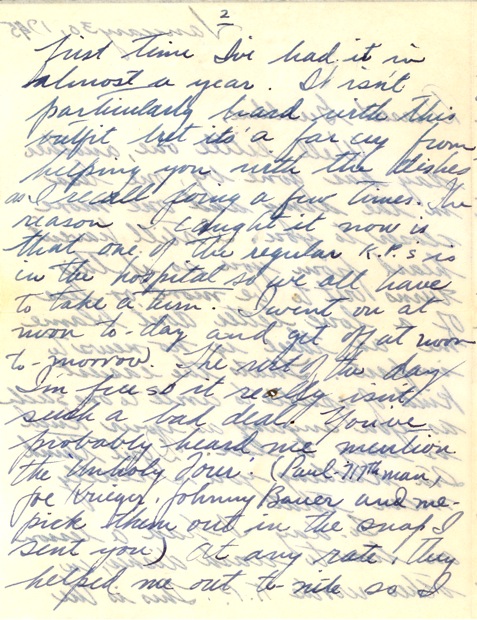 2
first time I've had it in
almost a year. It isn't
particularly hard with this
outfit but it's a far cry from
helping you with the dishes
as I recall doing a few times. The
reason I caught it now is
that one of the regular K.P.s is
in the hospital so we all have
to take a turn. I went on at
noon to-day and get off at noon
to-morrow. The rest of the day
I'm free so it really isn't
such a bad deal. You've
probably heard me mention
the "Unholy Four". (Paul
man,
Joe Krieger, Johnny Bauer and me-
pick them out in the snap I
sent you) At any rate, they
helped me out to-nite so I